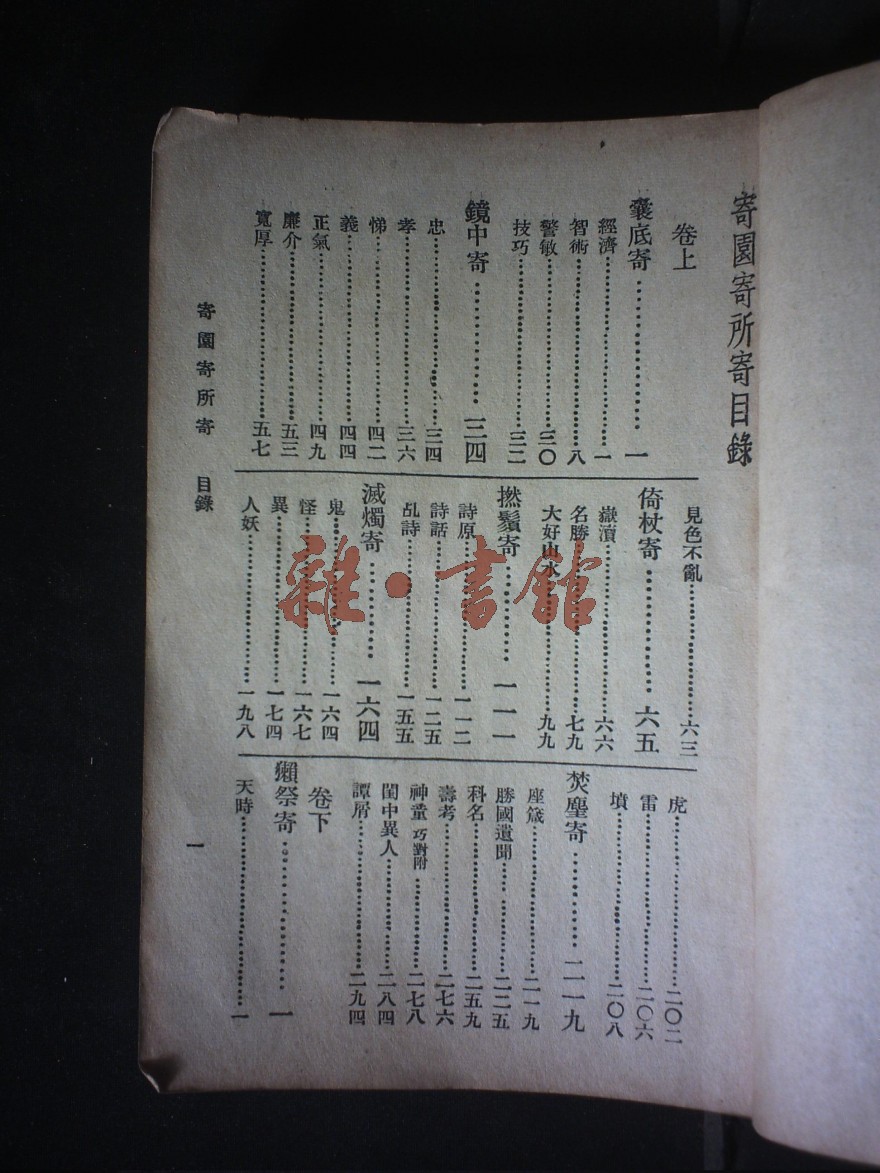 寄園寄所寄目錄
卷上
囊底寄…………一
經濟…………一
智術…………八
警敏…………三〇
技巧…………三二
鏡中寄…………三四
忠…………三四
孝…………三六
悌…………四二
義…………四四
正氣…………四九
廉介…………五三
寬厚…………五七
見色不亂…………六三
倚杖寄…………六五
嶽瀆…………六六
名勝…………七九
大好山水…………九九
撚鬚寄…………一一一
詩原…………一一二
詩話…………一二五
乩詩…………一五五
滅燭寄…………一六四
鬼…………一六四
怪…………一六七
異…………一七四
人妖…………一九八
虎…………二〇二
雷…………二〇六
墳…………二〇八
焚麈寄…………二一九
座箴…………二一九
勝國遺聞…………二二五
科名…………二五九
壽考…………二七六
神童 巧對附…………二七八
閨中異人…………二八四
譚屑…………二九四
卷下
獺祭寄…………一
天時…………一
寄園寄所寄 目錄
一
雜·書館